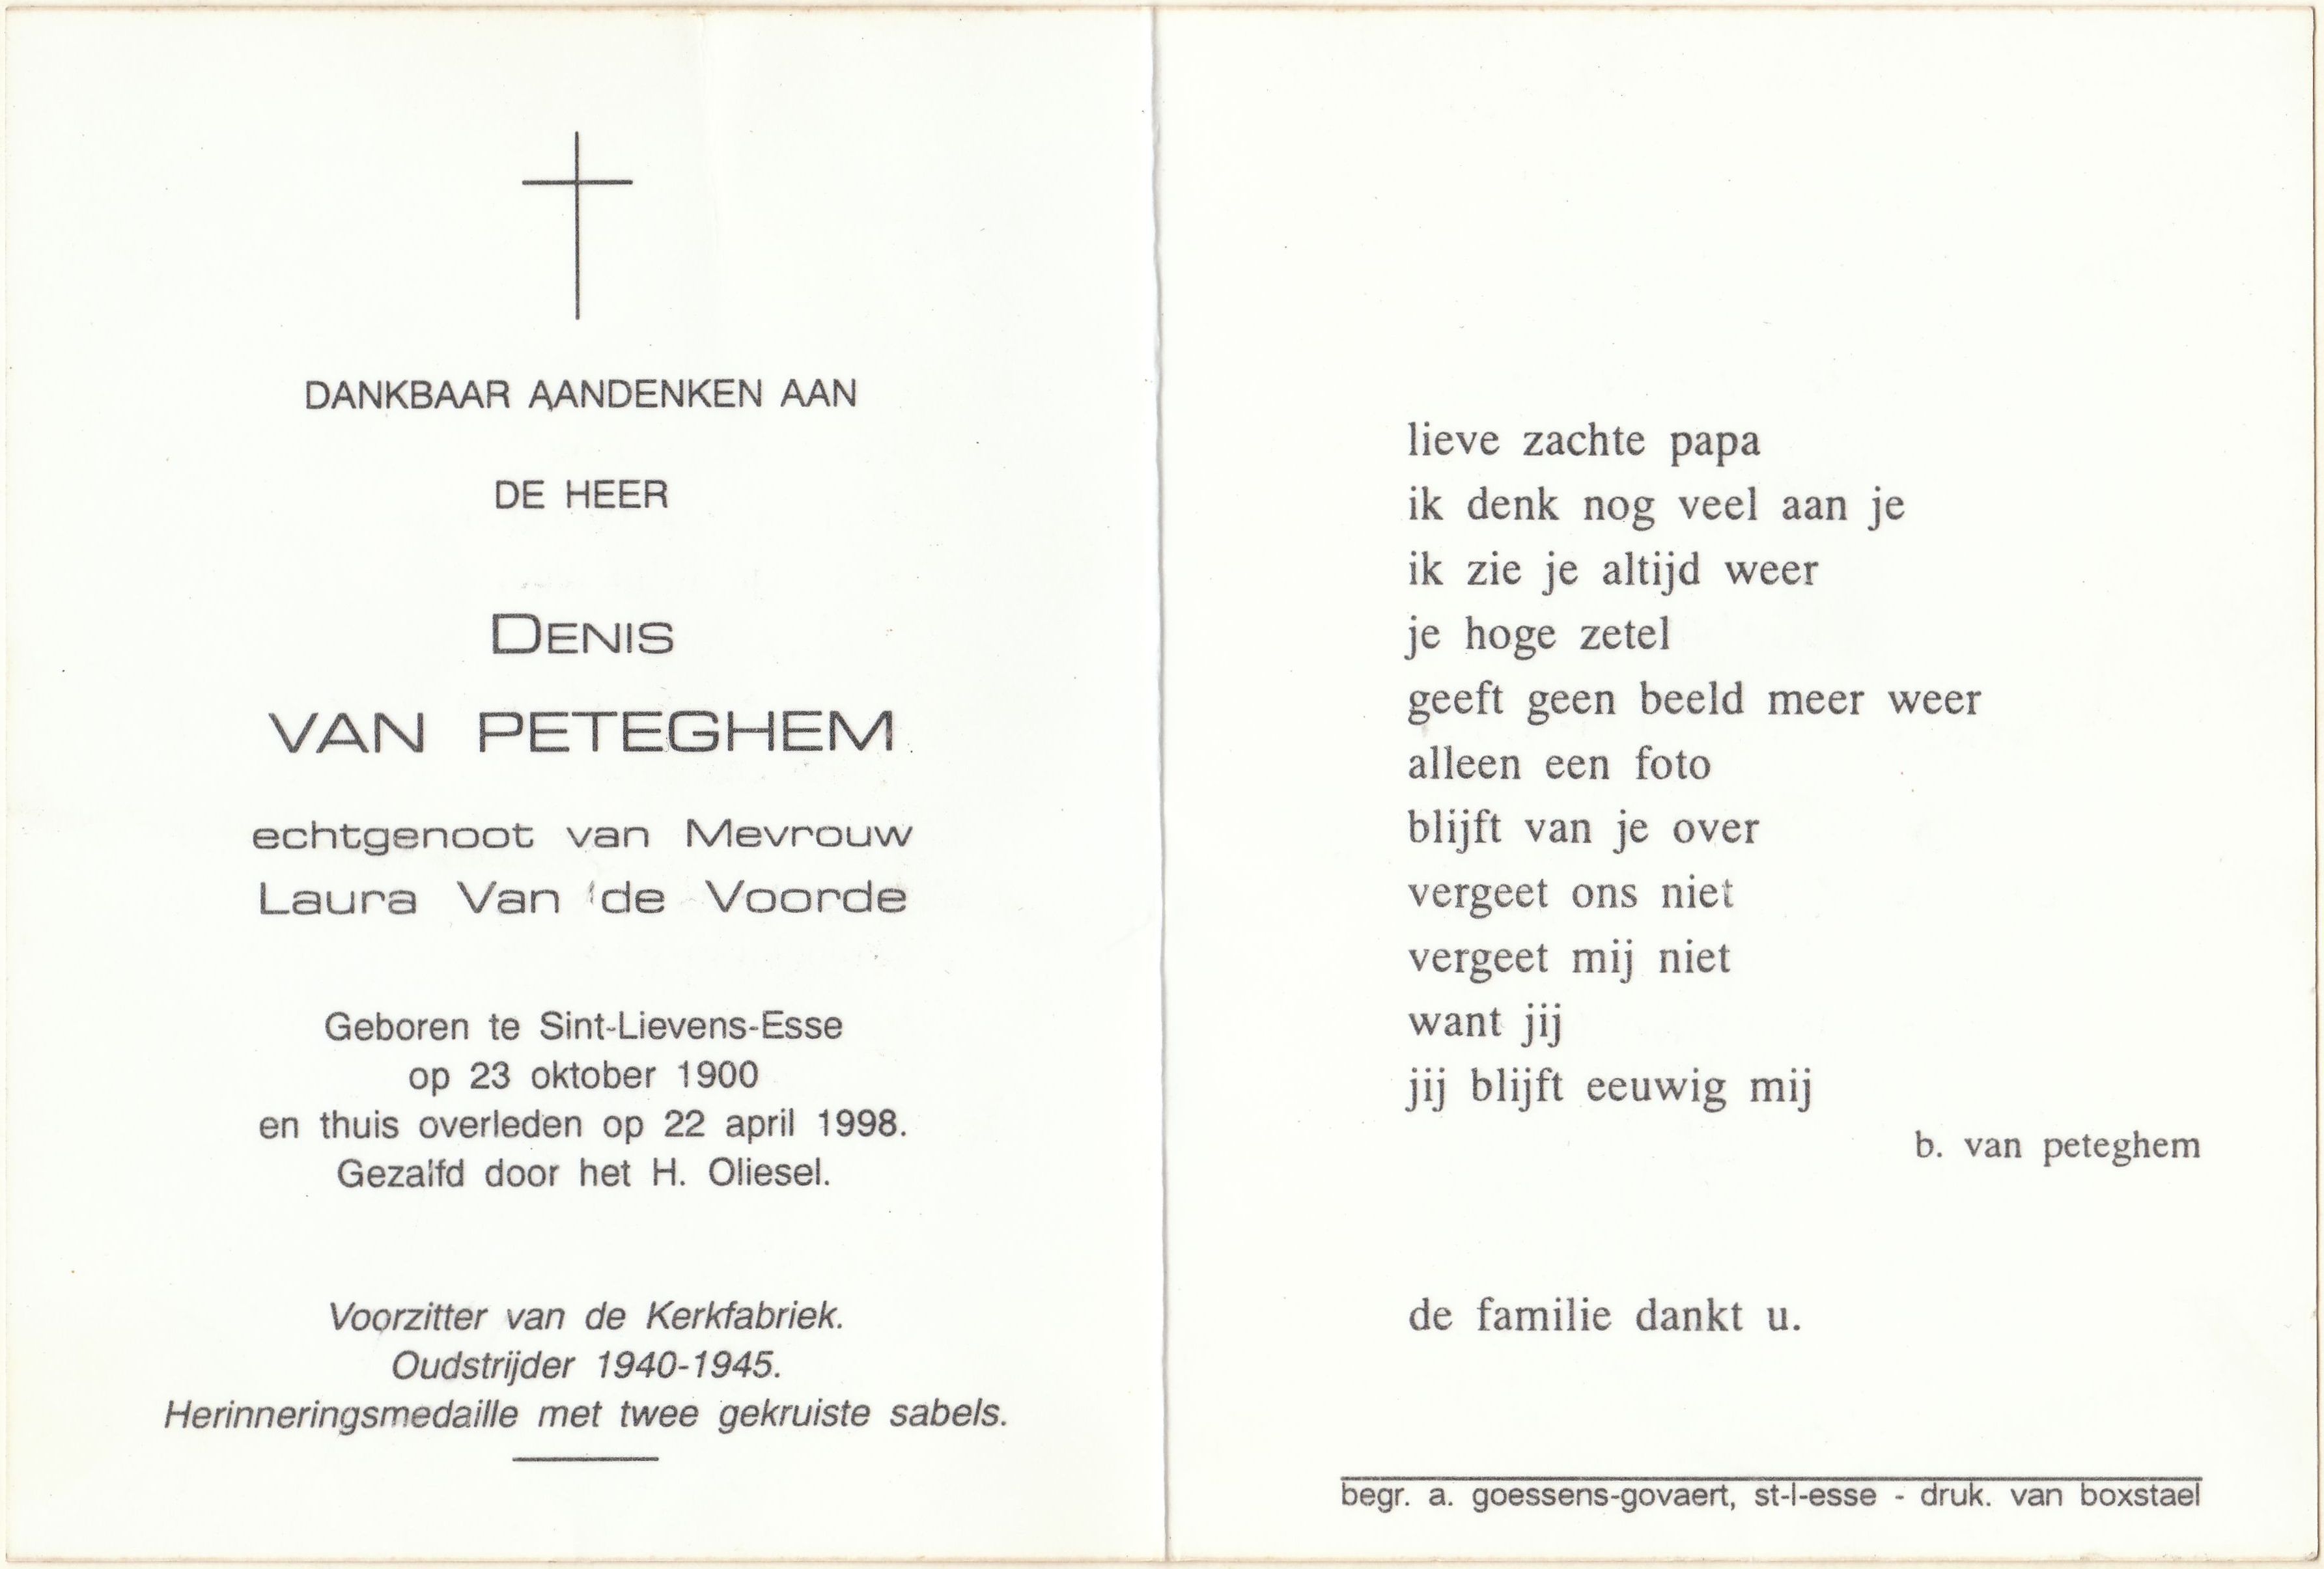 DANKBAAR AANDENKEN AAN
DE HEER
DENIS
VAN PETEGHEM
echtgenoot van Mevrouw
Laura Van de Voorde
Geboren te Sint-Lievens-Esse
op 23 oktober 1900
en thuis overleden op 22 april 1998.
Gezalfd door het H. Oliesel.
Voorzitter van de Kerkfabriek.
Oudstrijder 1940-1945.
Herinneringsmedaille met twee gekruiste sabels.
lieve zachte papa
ik denk nog veel aan je
ik zie je altijd weer
je hoge zetel
geeft geen beeld meer weer
alleen een foto
blijft van je over
vergeet ons niet
vergeet mij niet
want jij
jij blijft eeuwig mij
b. van peteghem
de familie dankt u.
begr. a. goessens-govaert, st-l-esse - druk. van boxstael